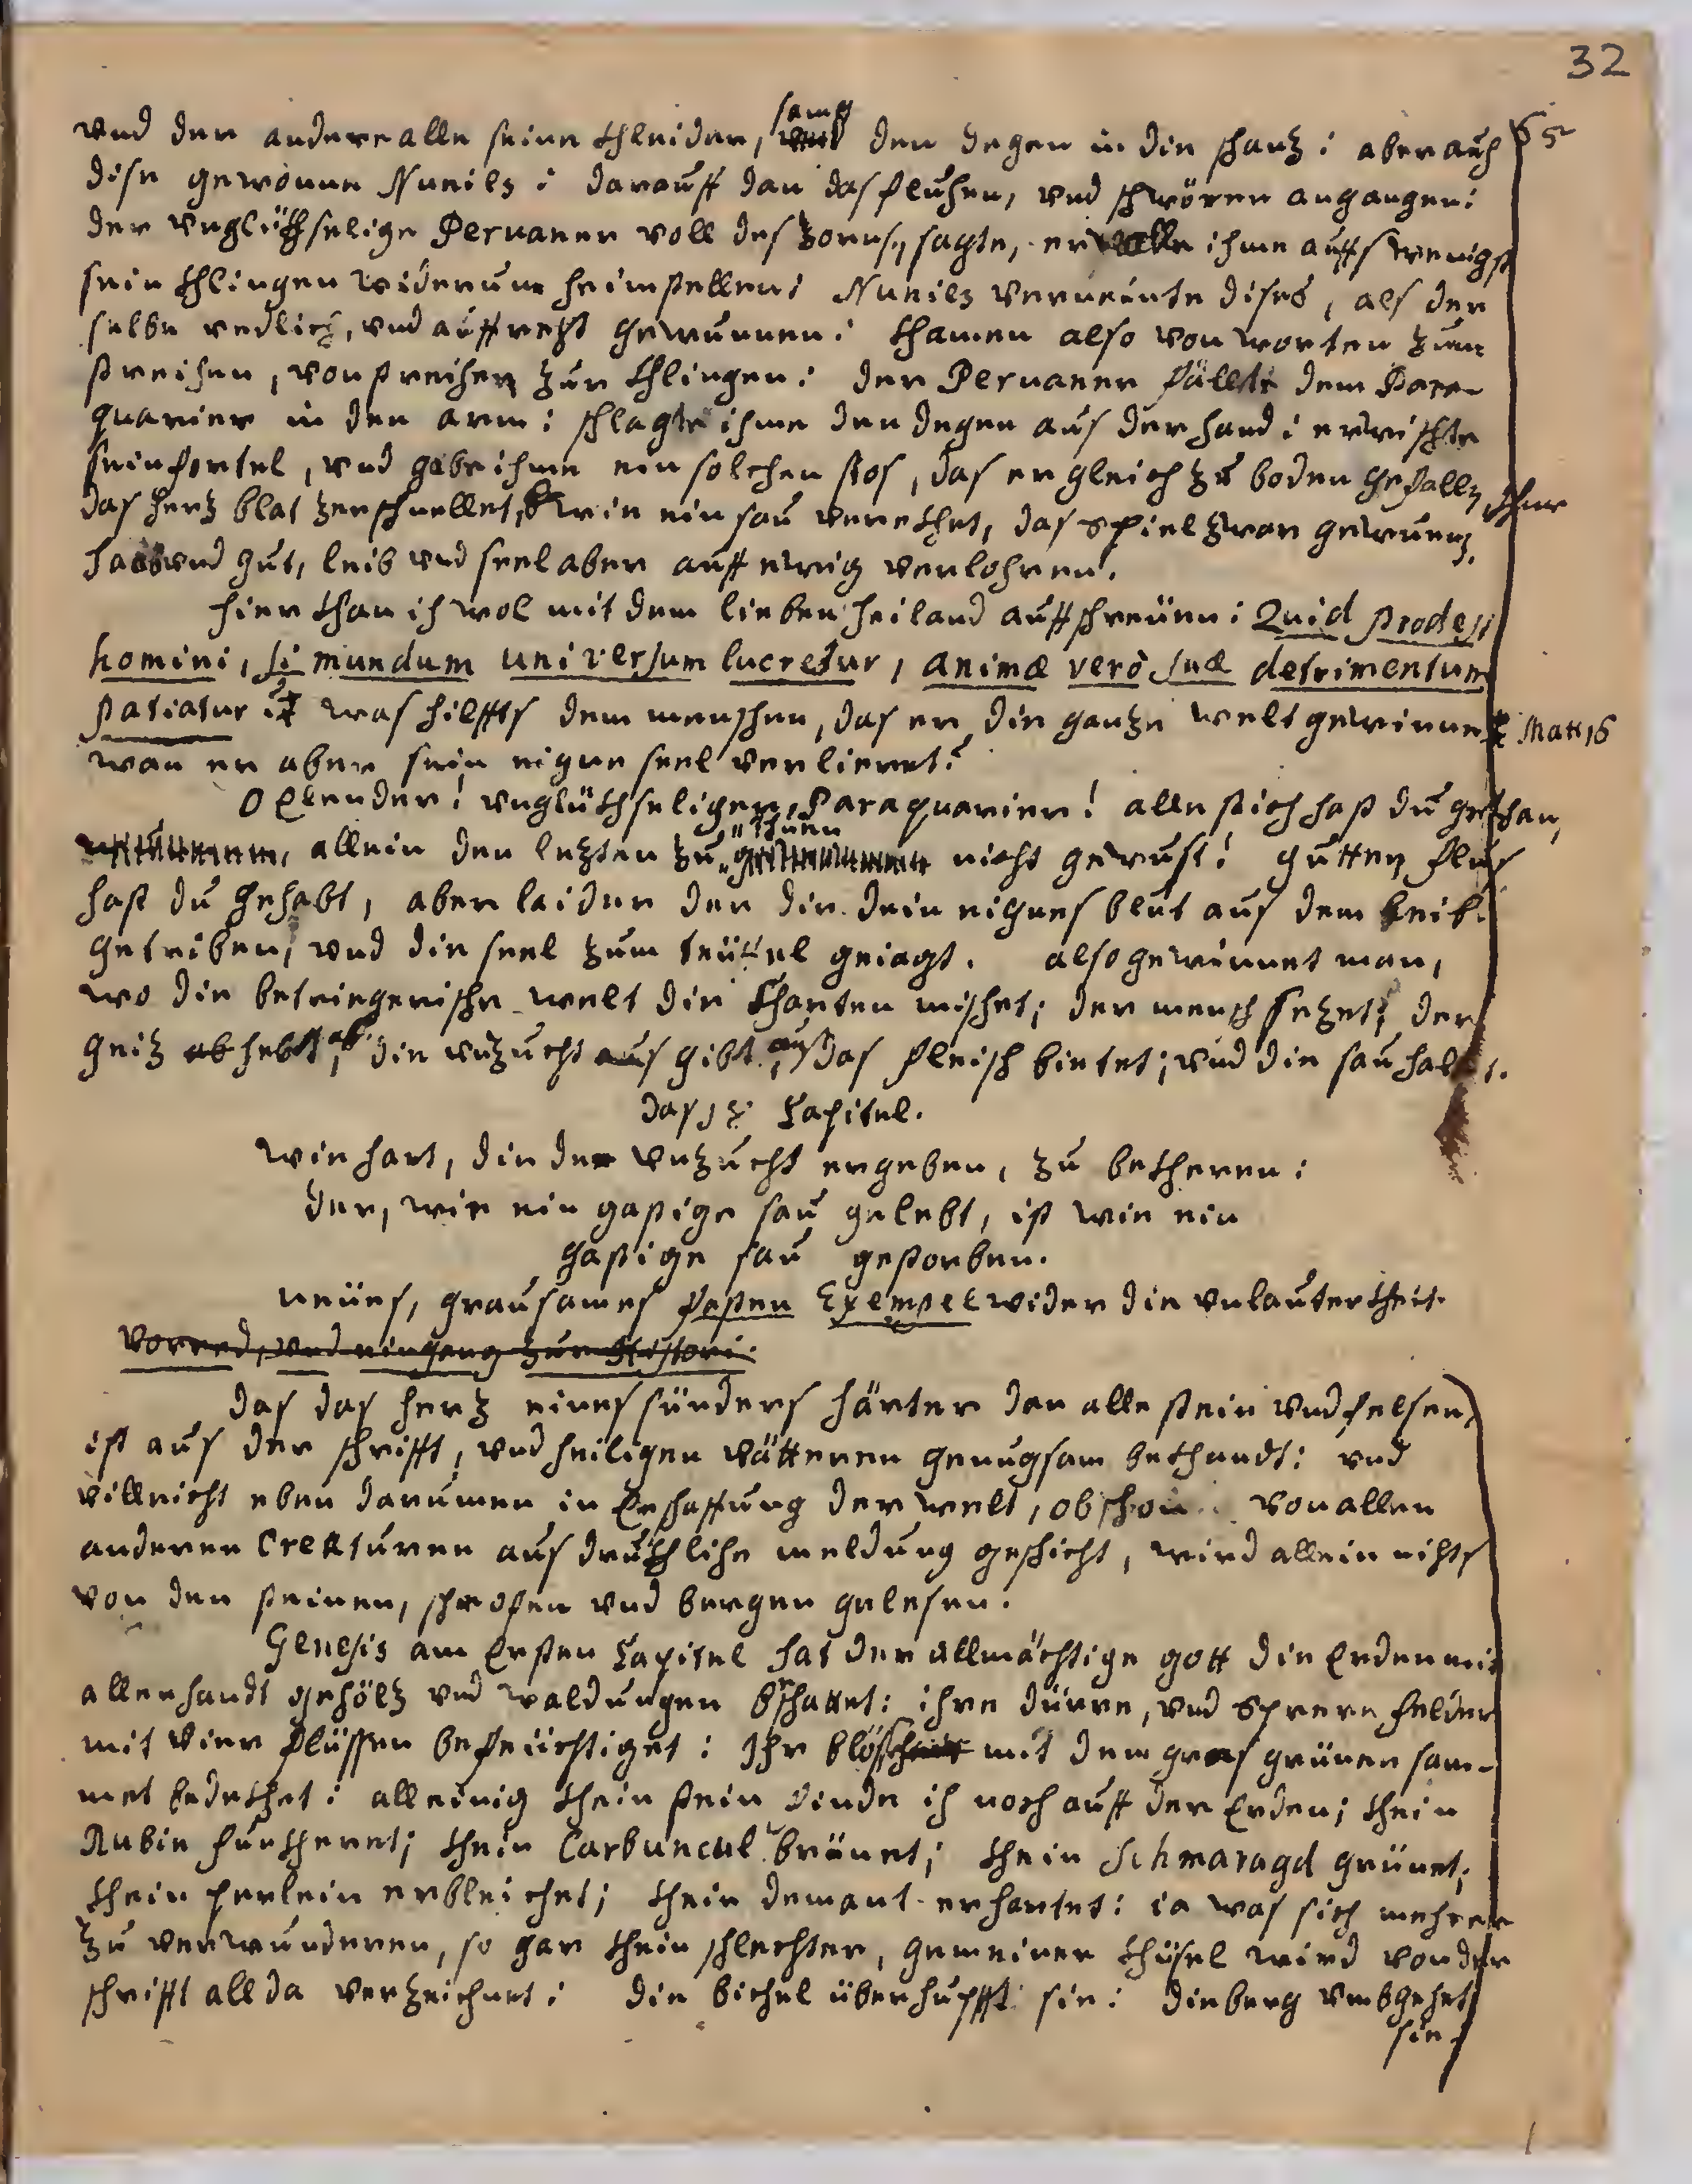 32
vnd der andere alle seine Chleider, samt den degen in die schanz: aber auch
dise gewonne Nunilz: darauff dan das fluchen, vnd schwören angangen:
der vnglükhselige Peruaner voll des zorns, sagte, er wolle ihme auffs wenigst
sein Chlingen widerum heimstellen: Nunilz verneinte dises, als der
selbe redlich, vnd auffrecht gewunnen: khamen also von worten zum
streichen, von streichen zur Chlingen: der Peruaner fällete dem Para-
quarier in den arm: schlagte ihme den degen aus der hand: erwischte
sein vortel, vnd gabe ihme ein solchen stos, das er gleich zu boden gefallen, ihme
das herz blat zerschnellet, wie ein sau verekhet, das spiel zwar gewunen,
haab vnd gut, leib vnd seel aber auff ewig verlohren.
Hier khan ich wol mit dem lieben heiland auffschreüen: Quid prodest
homini, si mundum universum lucretur, animæ verò suæ detrimentum
patiatur? was hilffts dem menschen, das er die ganze welt gewinne, Matt 16
wan er aber sein eigne seel verlieret?
O Elender! vnglükhseliger Paraquarier! alle stich hast du gethan,
allein den lezten zu thuen nicht gewust! gutten flus
hast du gehabt, aber laider der dir dein eignes blut aus dem leib
getriben, vnd die seel zum teüffel geiagt. also gewinnet man,
wo die betriegerische welt die Charten mischet; der mensch sezet; der
geiz abhebt; die vnzucht aus gibt; das fleisch bietet; vnd die sau haltet.
Das Capitel.
wie hart, die der vnzucht ergeben, zu bekheren:
der, wie ein gastige sau gelebt, ist wie ein
gastige sau gestorben.
neües, grausames Exempel wider die vnlauterkheit.
Vorred, vnd eingang zur Histori.
Das das herz eines sünders härter dan alle stein vnd felsen,
ist aus der schrifft, vnd heiligen vätteren genugsam bekhandt: vnd
villeicht eben darumen in Erschaffung der welt, obschon von allen
anderen Creaturen ausdrukhliche meldung geschicht, wird allein nichts
von den steinen, schrofen vnd bergen gelesen.
Genesis am Ersten Capitel hat der allmächtige gott die Erden mit
allerhandt gehölz vnd waldungen bschattet: ihre dürre, vnd spere felder
mit vier flüssen befeüchtiget: Ihr blösse mit dem gras grünen sam-
met bedekhet: alleinig khein stein finde ich noch auff der Erden; khein
Rubin funkheret; khein Carbuncul bräunet; khein Schmaragd grünet;
khein perlein erbleichet; khein demant erhartet: ia was sich mehrer
zu verwunderen, so gar khein schlechter, gemeiner khisel wird von der
schrifft allda verzeichnet: die bichel überhupfft sie: die berg vmbgehet
sie: